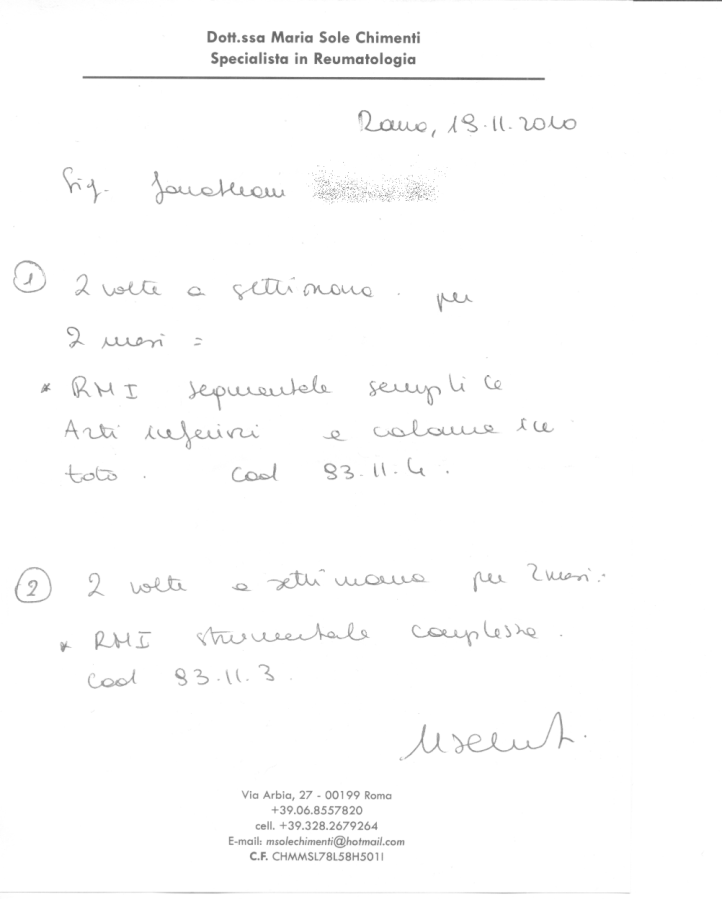 Dott.ssa Maria Sole Chimenti
Specialista in Reumatologia
Roma, 19.11.2010
Sig. Jonathan
1 2 volte a settimana. per
2 mesi =
* RMI segmentale semplice
Arti inferiori e colonna in
toto. Cod 93.11.4.
2 2 volte a settimana per 2 mesi:
* RMI strumentale complessa.
Cod 93.11.3.
Via Arbia, 27 - 00199 Roma
+39.06.8557820
cell. +39.328.2679264
E-mail: msolechimenti@hotmail.com
C.F. CHMMSL78L58H501I